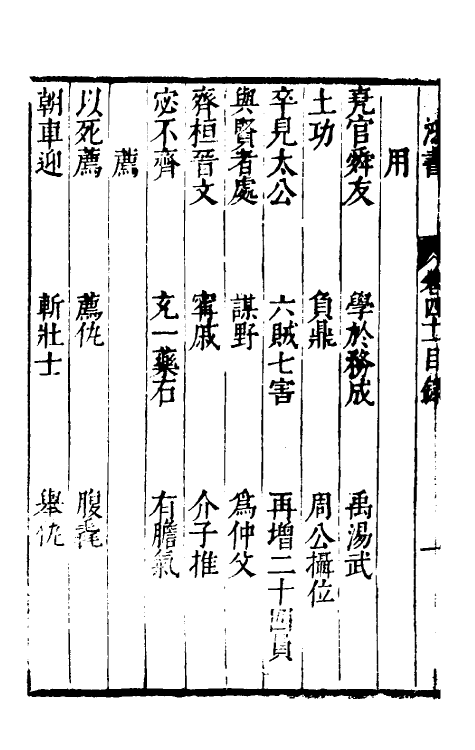 卷四十一目錄 一
用
堯官舜友 學於務成 禹湯武
土功 負鼎 周公攝位
卒見太公 六賊七害 再增二十四員
與賢者處 謀野 為仲父
齊桓晉文 甯戚 介子推
宓不齊 充一藥石 有膽氣
薦
以死薦 薦仇 腹㲠
朝車迎 斬壯士 舉仇